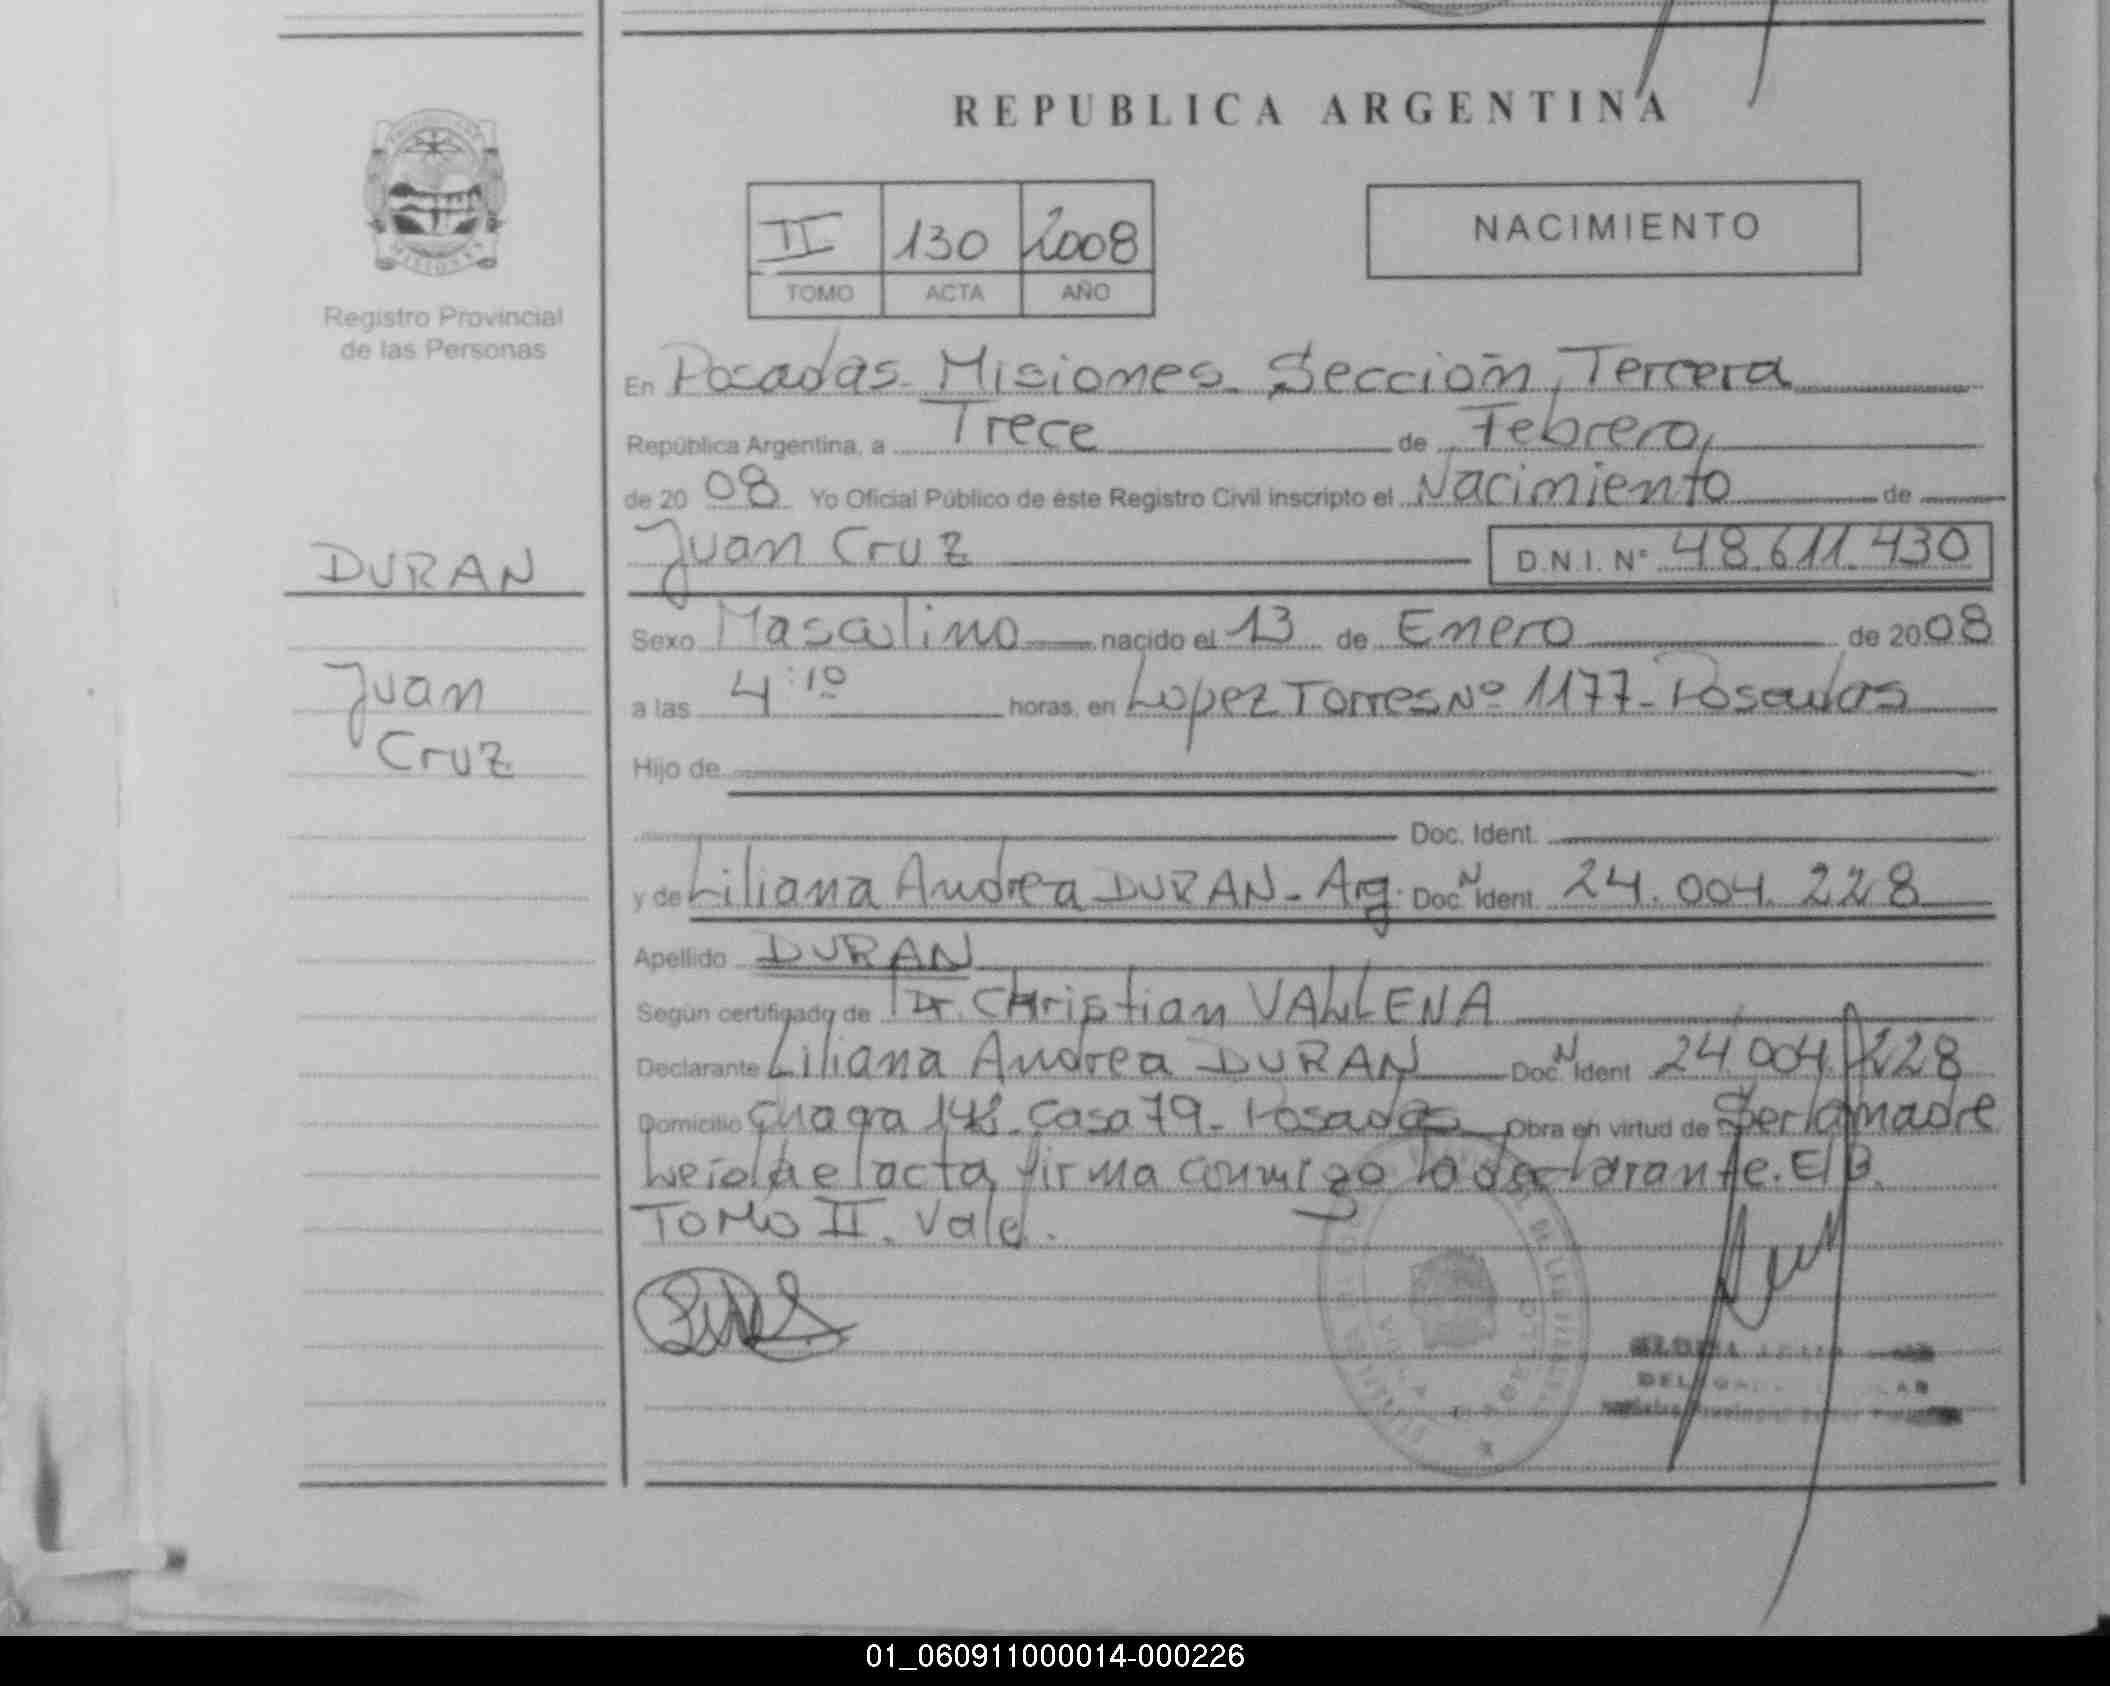 REPUBLICA ARGENTINA
MISIONES
Registro Provincial
de las Personas
II 130 2008
TOMO ACTA AÑO
NACIMIENTO
En Posadas. Misiones. Sección, Tercera
República Argentina, a Trece de Febrero,
de 20 08 Yo Oficial Público de éste Registro Civil inscripto el Nacimiento de
DURAN
Juan Cruz D.N.I. Nº 48.611.430
Sexo Masculino nacido el 13 de Enero de 2008
Juan
Cruz
a las 4:10 horas, en Lopez Torres Nº 1177- Posadas
Hijo de
Doc. Ident.
y de Liliana Andrea DURAN- Arg. Doc. N Ident. 24.004.228
Apellido DURAN
Según certificado de Dr. Christian VALLENA
Declarante Liliana Andrea DURAN Doc. N Ident 24.004.228
Domicilio Chacra Casa 79- Posadas Obra en virtud de Ser la madre
Leida el acta, firma conmigo la declarante. E/
TOMO II. Vale.
01_060911000014-000226